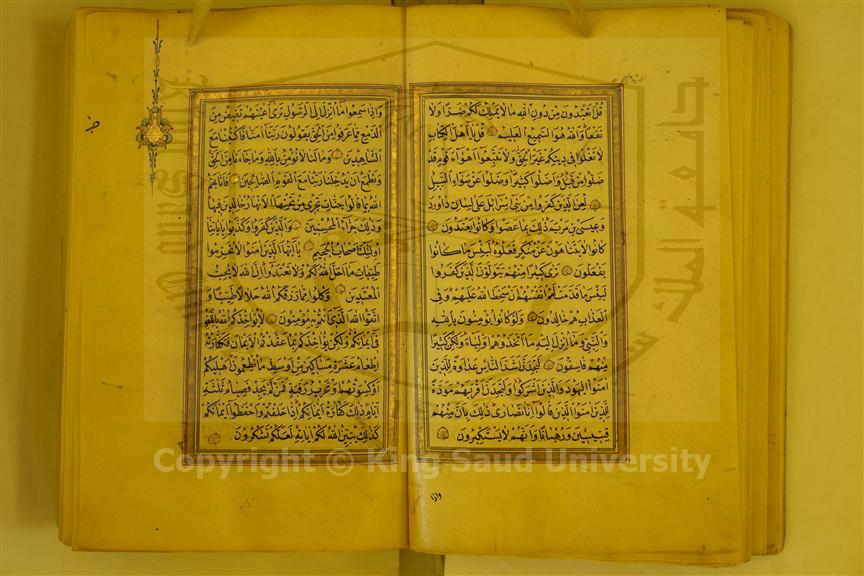 قُلْ اَتَعْبُدُونَ مِنْ دُونِ اللّٰهِ مَا لَا يَمْلِكُ لَكُمْ ضَرًّا وَلَا
نَفْعًا وَاللّٰهُ هُوَ السَّمِيعُ الْعَلِيمُ قُلْ يَا اَهْلَ الْكِتَابِ
لَا تَغْلُوا فِي دِينِكُمْ غَيْرَ الْحَقِّ وَلَا تَتَّبِعُوا اَهْوَاءَ قَوْمٍ قَدْ
ضَلُّوا مِنْ قَبْلُ وَاَضَلُّوا كَثِيرًا وَضَلُّوا عَنْ سَوَاءِ السَّبِيلِ
لُعِنَ الَّذِينَ كَفَرُوا مِنْ بَنِي اِسْرَائِلَ عَلٰى لِسَانِ دَاوُدَ
وَعِيسَى بْنِ مَرْيَمَ ذٰلِكَ بِمَا عَصَوْا وَكَانُوا يَعْتَدُونَ
كَانُوا لَا يَتَنَاهَوْنَ عَنْ مُنْكَرٍ فَعَلُوهُ لَبِئْسَ مَا كَانُوا
يَفْعَلُونَ تَرٰى كَثِيرًا مِنْهُمْ يَتَوَلَّوْنَ الَّذِينَ كَفَرُوا
لَبِئْسَ مَا قَدَّمَتْ لَهُمْ اَنْفُسُهُمْ اَنْ سَخِطَ اللّٰهُ عَلَيْهِمْ وَفِي
الْعَذَابِ هُمْ خَالِدُونَ وَلَوْ كَانُوا يُؤْمِنُونَ بِاللّٰهِ
وَالنَّبِيِّ وَمَا اُنْزِلَ اِلَيْهِ مَا اتَّخَذُوهُمْ اَوْلِيَاءَ وَلٰكِنَّ كَثِيرًا
مِنْهُمْ فَاسِقُونَ لَتَجِدَنَّ اَشَدَّ النَّاسِ عَدَاوَةً لِلَّذِينَ
اٰمَنُوا الْيَهُودَ وَالَّذِينَ اَشْرَكُوا وَلَتَجِدَنَّ اَقْرَبَهُمْ مَوَدَّةً
لِلَّذِينَ اٰمَنُوا الَّذِينَ قَالُوا اِنَّا نَصَارٰى ذٰلِكَ بِاَنَّ مِنْهُمْ
قِسِّيسِينَ وَرُهْبَانًا وَاَنَّهُمْ لَا يَسْتَكْبِرُونَ
واذا
وَاِذَا سَمِعُوا مَا اُنْزِلَ اِلَى الرَّسُولِ تَرٰى اَعْيُنَهُمْ تَفِيضُ مِنَ
الدَّمْعِ مِمَّا عَرَفُوا مِنَ الْحَقِّ يَقُولُونَ رَبَّنَا اٰمَنَّا فَاكْتُبْنَا مَعَ
الشَّاهِدِينَ وَمَا لَنَا لَا نُؤْمِنُ بِاللّٰهِ وَمَا جَاءَنَا مِنَ الْحَقِّ
وَنَطْمَعُ اَنْ يُدْخِلَنَا رَبُّنَا مَعَ الْقَوْمِ الصَّالِحِينَ فَاَثَابَهُمُ
اللّٰهُ بِمَا قَالُوا جَنَّاتٍ تَجْرِي مِنْ تَحْتِهَا الْاَنْهَارُ خَالِدِينَ فِيهَا
وَذٰلِكَ جَزَاءُ الْمُحْسِنِينَ وَالَّذِينَ كَفَرُوا وَكَذَّبُوا بِاٰيَاتِنَا
اُولٰئِكَ اَصْحَابُ الْجَحِيمِ يَا اَيُّهَا الَّذِينَ اٰمَنُوا لَا تُحَرِّمُوا
طَيِّبَاتِ مَا اَحَلَّ اللّٰهُ لَكُمْ وَلَا تَعْتَدُوا اِنَّ اللّٰهَ لَا يُحِبُّ
الْمُعْتَدِينَ وَكُلُوا مِمَّا رَزَقَكُمُ اللّٰهُ حَلَالًا طَيِّبًا وَ
اتَّقُوا اللّٰهَ الَّذِي اَنْتُمْ بِهِ مُؤْمِنُونَ لَا يُؤَاخِذُكُمُ اللّٰهُ بِاللَّغْوِ
فِي اَيْمَانِكُمْ وَلٰكِنْ يُؤَاخِذُكُمْ بِمَا عَقَّدْتُمُ الْاَيْمَانَ فَكَفَّارَتُهُ
اِطْعَامُ عَشَرَةِ مَسَاكِينَ مِنْ اَوْسَطِ مَا تُطْعِمُونَ اَهْلِيكُمْ
اَوْ كِسْوَتُهُمْ اَوْ تَحْرِيرُ رَقَبَةٍ فَمَنْ لَمْ يَجِدْ فَصِيَامُ ثَلٰثَةِ
اَيَّامٍ ذٰلِكَ كَفَّارَةُ اَيْمَانِكُمْ اِذَا حَلَفْتُمْ وَاحْفَظُوا اَيْمَانَكُمْ
كَذٰلِكَ يُبَيِّنُ اللّٰهُ لَكُمْ اٰيَاتِهِ لَعَلَّكُمْ تَشْكُرُونَ
جامعة الملك سعود
Copyright © King Saud University